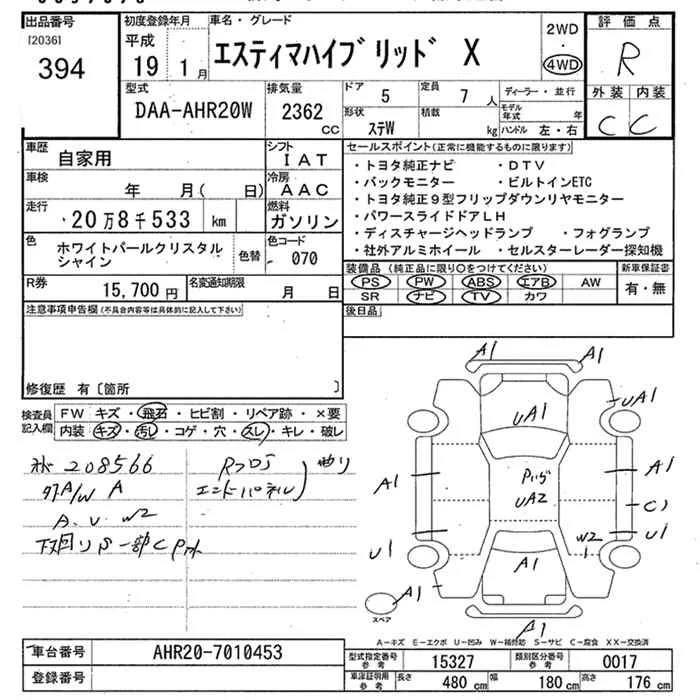 出品番号 初度登録年月 車名・グレード 2WD・4WD 評価点
[2036] 平成 エスティマハイブリッド X R
394 19 1月 外装 内装
型式 排気量 ドア 5 定員 7人 ディーラー・並行 C C
DAA-AHR20W 2362cc 形状 ステW 積載 kg モデル年式 年 ハンドル 左・右
車歴 自家用 シフト IAT セールスポイント(正常に機能するものに限ります)
車検 年 月( 日) 冷房 AAC ・トヨタ純正ナビ ・DTV
・バックモニター ・ビルトインETC
・トヨタ純正9型フリップダウンリヤモニター
走行 20万8千533 km 燃料 ガソリン ・パワースライドドアLH
・ディスチャージヘッドランプ ・フォグランプ
色 ホワイトパールクリスタルシャイン 色替 色コード 070 ・社外アルミホイール ・セルスターレーダー探知機
R券 15,700円 名変通知期限 月 日 装備品(純正品に限り○をつけてください) 新車保証書
PS PW ABS エアB AW 有・無
SR ナビ TV カワ
注意事項申告欄(不具合内容等は具体的に記入して下さい) 後日品
修復歴 有〔箇所 〕
検査員記入欄 FW キズ・飛石・ヒビ割・リペア跡・×要
内装 キズ・汚レ・コゲ・穴・スレ・キレ・破レ
208566 曲り
A/W A エンドパネル
A.U.W2
下回り 一部C
A1 A1
UA1 UA1
A1 UA2 A1
C1
U1 W2 U1
A1
A1
スペア
A1
A-キズ E-エクボ U-凹み W-補修跡 S-サビ C-腐食 XX-交換済
車台番号 AHR20-7010453 型式指定番号参考 15327 類別区分番号参考 0017
登録番号 車淳証明用参考 長さ 480cm 幅 180cm 高さ 176cm